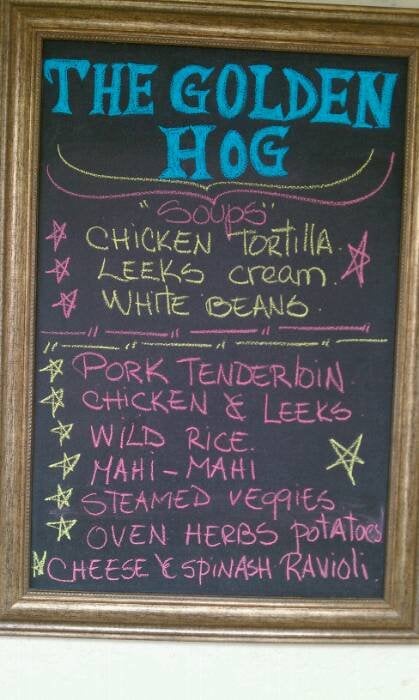 THE GOLDEN
HOG
"Soups"
CHICKEN TORTILLA.
LEEKS cream.
WHITE BEANS.
PORK TENDERloIN.
CHICKEN & LEEKS
WILD RICE.
MAHI-MAHI
STEAMED VEGGIES
OVEN HERBS potATOES
CHEESE & SPINASH RAVIOLI.